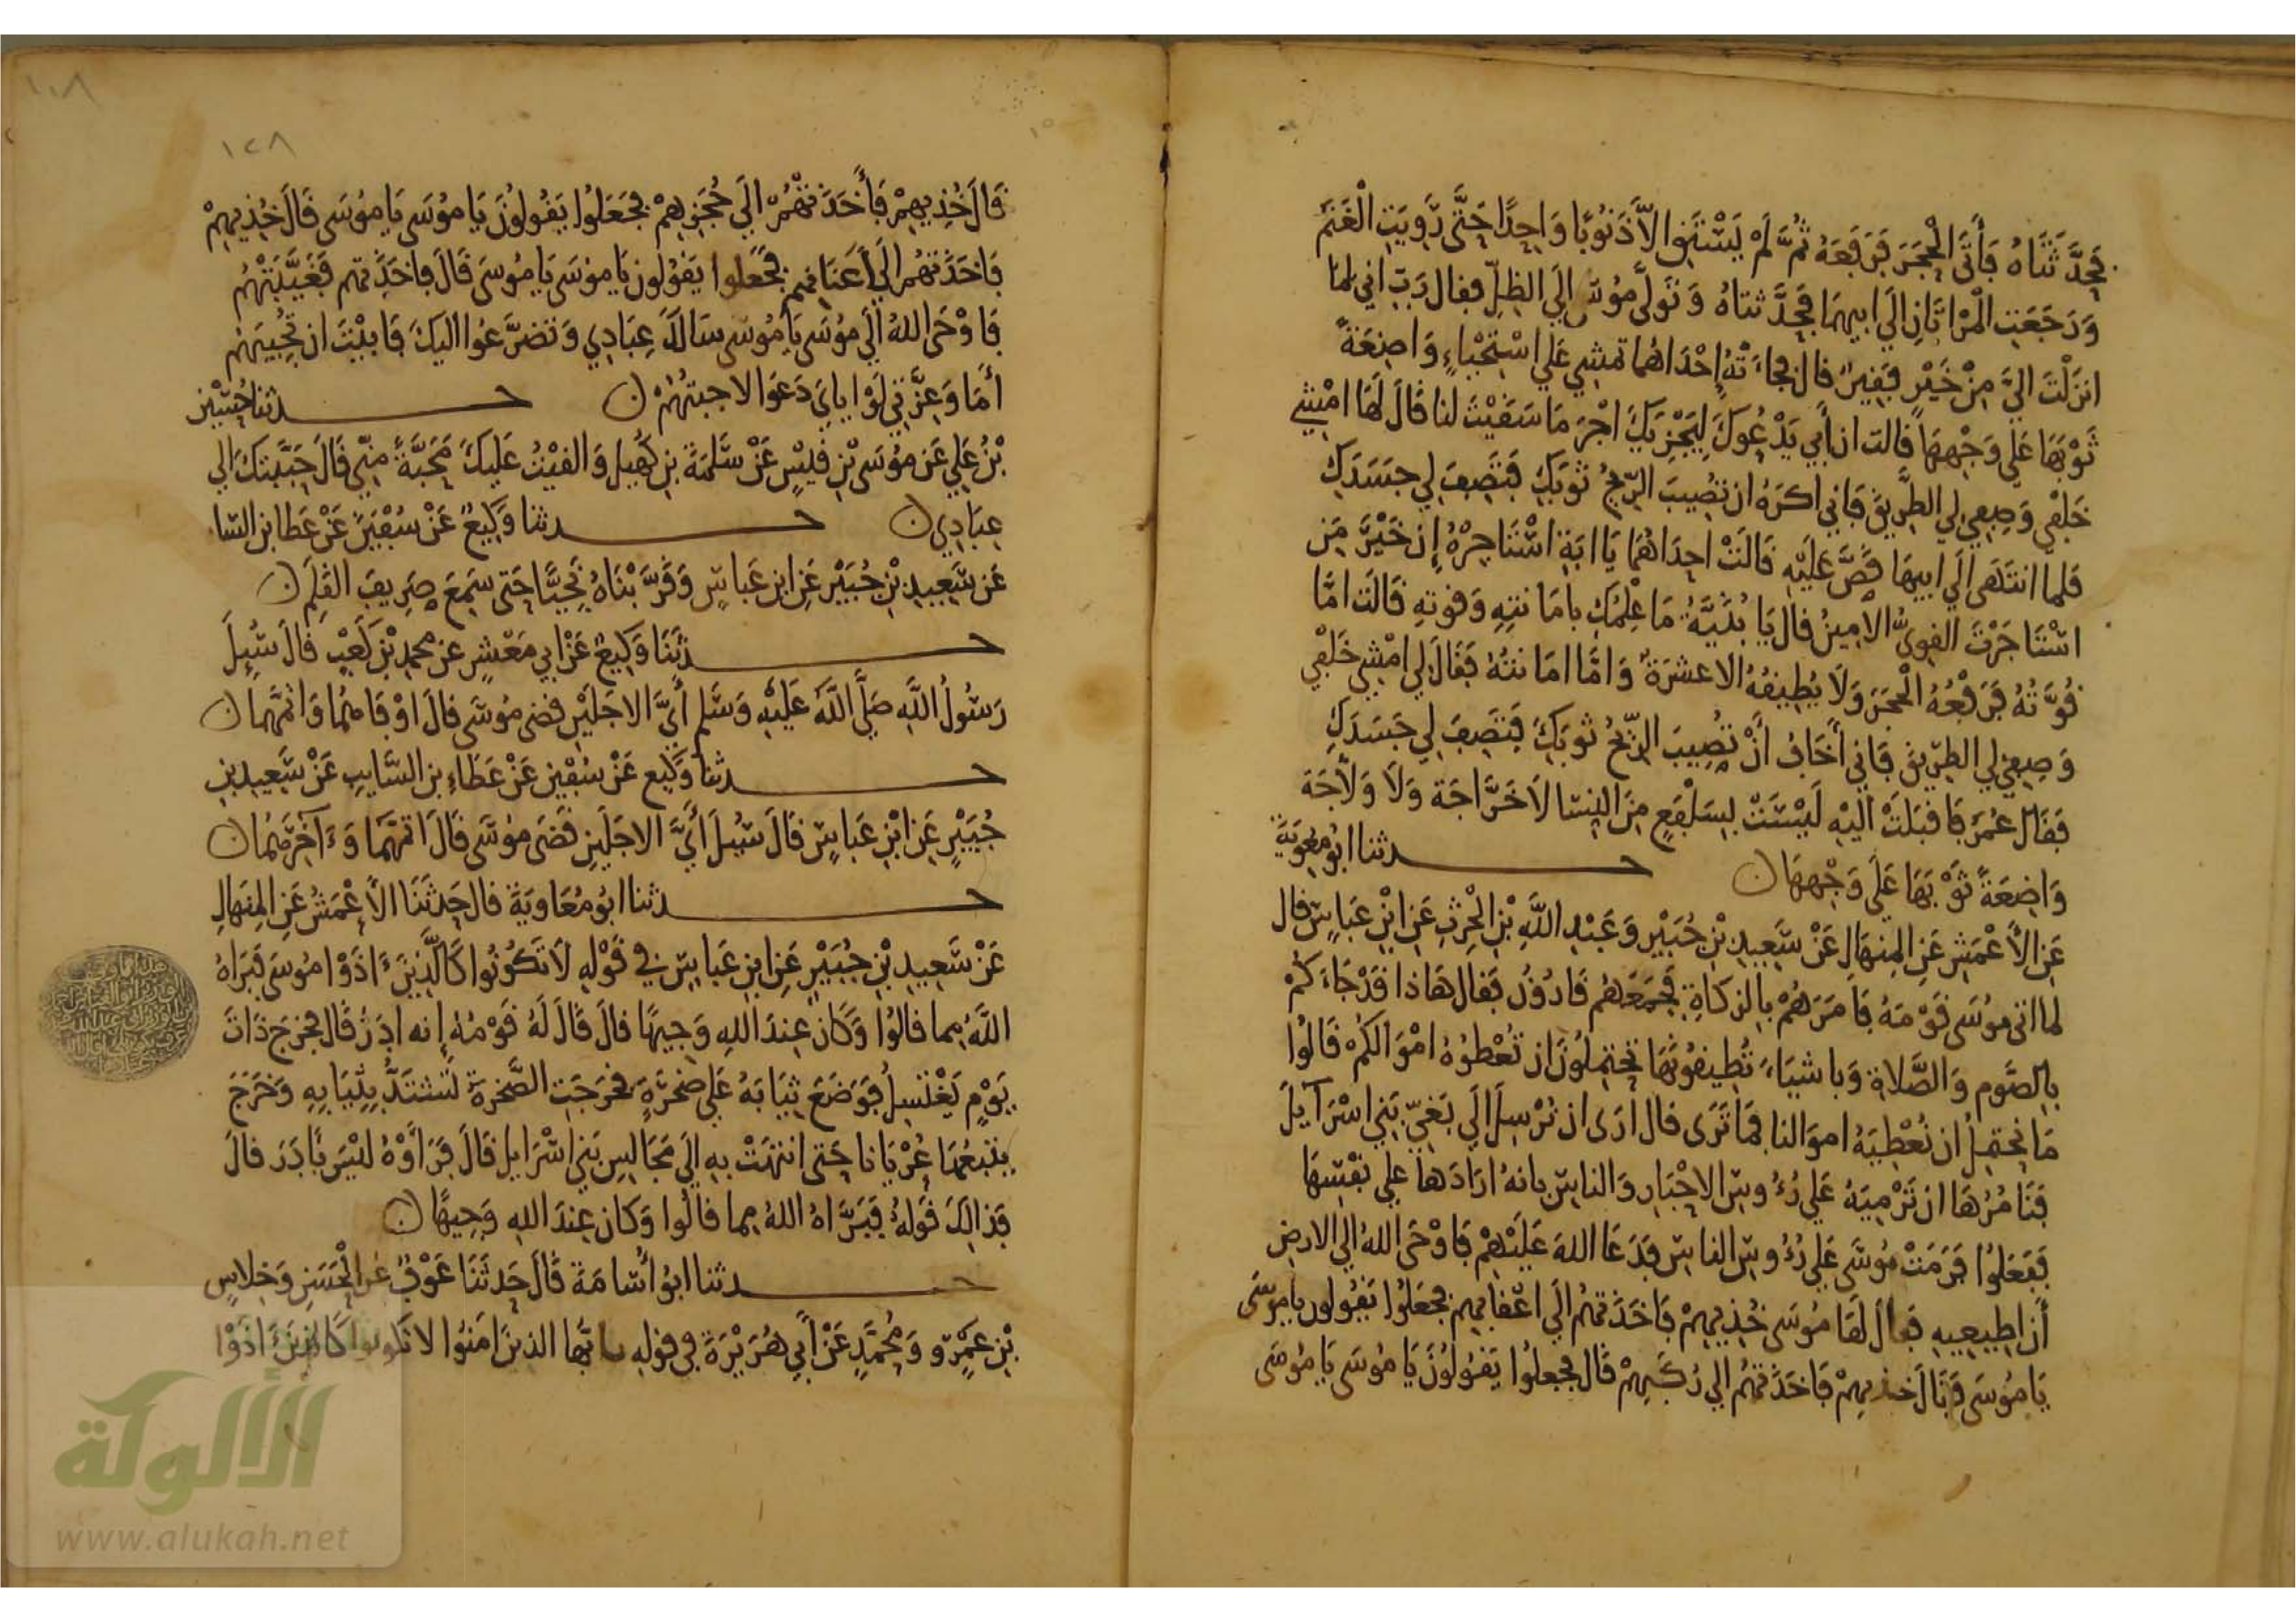 فَحَدَّثَتَاهُ فَأَتَى الْحَجَرَ فَرَفَعَهُ ثُمَّ لَمْ يَسْتَقِ الاَّ ذَنُوبًا وَاحِدًا حَتَّى رَوِيَتِ الْغَنَمُ
وَرَجَعَتِ الْمَرْاتَانِ الَى ابِيهِمَا فَحَدَّثتاهُ وَتَوَلَّى مُوسَى الى الظِّلِّ فقال رَبِّ اني لمَا
انزَلْتَ الىَّ مِنْ خَيْرٍ فَقِيرٌ قال فجاءَتْهُ إحْدَاهُما تمشي عَلى اسْتِحْيَاءٍ وَاضِعَةً
ثَوْبَهَا عَلى وَجْهِهَا قالت ان أَبي يَدْعُوكَ لِيَجْزِيَكَ اجْرَ مَا سَقَيْتَ لنا قَالَ لَهَا امْشِي
خَلْفي وَصِفِي لِي الطَّرِيقَ فَاني اكرَهُ ان تُصِيبَ الرِّيحُ ثَوْبَكِ فَتَصِفَ لِي جَسَدَكِ
فَلما انتَهَى الَى ابِيهَا قَصَّ عَلَيْهِ قَالَتْ احِدَاهُمَا يَا ابَةِ اسْتَاجِرْهُ إِن خَيْرَ مَنِ
اسْتَاجَرْتَ القوِىُّ الامِينُ قال يَا بُنَيَّةُ مَا عِلْمُكِ بامَانَتِهِ وَقُوتِهِ قَالَت امَّا
قُوَّتُهُ فَرَفْعُهُ الْحَجَرَ وَلَا يُطِيقُهُ الا عشرَةٌ وَامَّا امَانَتُهُ فَقَالَ لِي امْشِي خَلْفِي
وَصِفِي لِي الطَّرِيقَ فَاني أَخَافُ أَنْ تُصِيبَ الرِّيحُ ثَوبَكِ فَتَصِفَ لِي جَسَدَكِ
فَقَال عُمَرُ فَاقبَلَتْ الَيْهِ لَيْسَتْ بِسَلْفَعٍ مِنَ النِسَا لاَ خَرَّاجَة وَلَا وَلَّاجَة
وَاضِعَةً ثَوْبَهَا عَلَى وَجْهِهَا ن حـــدثنا ابُو مُعَوِيَة
عَنِ الأَعْمَشِ عَنِ المِنهَالِ عَنْ سَعِيدِ بْنِ جُبَيْرٍ وَعَبْدِ اللَّهِ بْنِ الْحٰرِثِ عَنِ ابْنِ عَبَاسٍ قال
لما اتى مُوسَى قَوْمَهُ فَامَرَهُمْ بِالزكاةِ فَجَمَعَهُم قَارُونُ فَقال هَاذا قَدْ جَاءَكُمْ
بِالصَّوم وَالصَّلاةِ وَباشيَاءَ تُطِيقُونَهَا تحتَمِلُونَ ان تُعْطُوهُ امْوَالَكُمْ قَالُوا
مَا نحتَمِلُ ان نُعْطِيَهُ امَوَالنا فَمَا تَرَى قال أَرَى ان نُرْسِلَ الَى بَغِيِّ بَنِي اسْرَآيلَ
فَنَامُرُهَا ان تَرْمِيَهُ عَلَى رُءُوسِ الاحْبَارِ وَالنَاسِ بِانهُ ارَادَهَا عَلى نَفْسِهَا
فَفَعَلُوا فَرَمَتْ مُوسَى عَلى رُءُوسِ الناسِ فَدَعَا اللهَ عَلَيْهِمْ فَاوْحَى اللهُ الى الارضِ
أَنْ اطِيعِيهِ فَقَالَ لَهَا مُوسَى خُذِيهِمْ فَاخَذَتْهُمْ الَى اعْقَابِهِم فَجَعَلُوا يَقُولُون يا مُوسَى
يَا مُوسَى قَالَ خُذِيهِمْ فَاخَذَتْهُمْ الي رُكَبِهِمْ قَال فجعلُوا يَقُولُونَ يَا مُوسَى يَا مُوسَى
١٠٨
١٢٨
قَالَ خُذِيهِمْ فَأَخَذَتْهُمْ الَي حُجَزِهِمْ فجَعَلُوا يَقُولُونَ يَا مُوسَى يَا مُوسَى قَالَ خُذِيهِمْ
فَاخَذَتْهُم الَى أَعنَاقِهِم فجَعَلوا يَقُولون يَا مُوسَى يَا مُوسَى قَالَ فاخَذَتهم فَغَيَّبَتْهُم
فَاوْحَى اللهُ الَي مُوسَى يَا مُوسَى سَالَكَ عِبَادِي وَتَضرَّعُوا اليكَ فَابيْتَ ان تُجِيبَهُم
أَمَا وَعِزَّتِي لَوْ ايايَ دَعَوا لاجبتُهُمْ ن حـــدثنا حُسَيْن
بْنُ عَلِي عَن مُوسَى بْنِ قَيْسٍ عَنْ سَلَمَة بنِ كُهَيل وَالقيْتُ عَلَيكَ مَحَبَّةً مِنّي قَالَ حَبَّبتكَ الى
عِبَادِي ن حـــدثنا وَكِيعٌ عَنْ سُفْيَنَ عَنْ عَطَا بن السّا
عَن سَعِيدِ بْنِ جُبَيْر عَنِ ابن عَباسٍ وَقَرَّبْنَاهُ نَجِيًّا حَتى سَمِعَ صَرِيفَ القَلَم ن
حـــدثَنَا وَكِيعٌ عَنْ ابي مَعْشَرٍ عن محمدِ بْنِ كَعْبٍ قَالَ سُيِلَ
رَسُولُ اللَّهِ صَلَّى اللَّهُ عَلَيْهِ وَسَلم أَيَّ الاجَلَيْنِ قضى مُوسَى قَالَ اوْفَاهُمَا وَاتَمَّهُمَا ن
حـــدثنا وَكِيع عَنْ سُفْيَن عَنْ عَطَاءِ بن السَّايِبِ عَنْ سَعِيدِ بنِ
جُبَيْرٍ عَنِ ابْنِ عَبَاسٍ قَالَ سُيلَ أَيَّ الاجَلَينِ قَضَى مُوسَى قَالَ اتَمَّهُمَا وَءَاخِرَهُمَا ن
حـــدثنا ابُو مُعَاوِيَة قال حَدثَنَا الأَعْمَشُ عَنِ المِنهَالِ
عَنْ سَعِيدِ بْنِ جُبَيْرٍ عَنِ ابنِ عَبَاسٍ في قَوْلِهِ لَا تَكُونُوا كَالَّذِينَ ءَاذَوْا مُوسَى فَبَرَّاهُ
اللَّهُ مما قالُوا وَكَانَ عِندَ اللهِ وَجِيهًا قالَ قَالَ لَهُ قَوْمُهُ إنه ادَرُ قَال فخرَجَ ذَاتَ
يَوْمٍ يَغْتَسِلُ فَوَضَعَ ثِيَابَهُ عَلَى صَخرَةٍ فخرَجَتِ الصَّخرَة تَشتَدُّ بِثِيَابِهِ وَخَرَجَ
يتبَعُهَا عُرْيَانا حَتى انتَهَتْ بِهِ الَي مَجَالِسِ بَني اسْرَايل قَالَ فَرَأَوْهُ لَيْسَ بآدَرَ قالَ
فَذالِكَ قَولهُ فَبَرَّاهُ اللهُ مِما قالُوا وَكان عِندَ اللهِ وَجِيهًا ن
حـــدثنا ابوُ أُسَامَة قَالَ حَدثَنَا عَوْفٌ عَن الْحَسَنِ وَخِلاسِ
بْنِ عَمْرٍو وَمُحَمَّدٍ عَنْ أَبي هُرَيْرَة في قولِهِ يا ايّها الذينَ امَنُوا لا تَكونُوا كَالذِينَ ءَاذَوْا
الألوكة
www.alukah.net